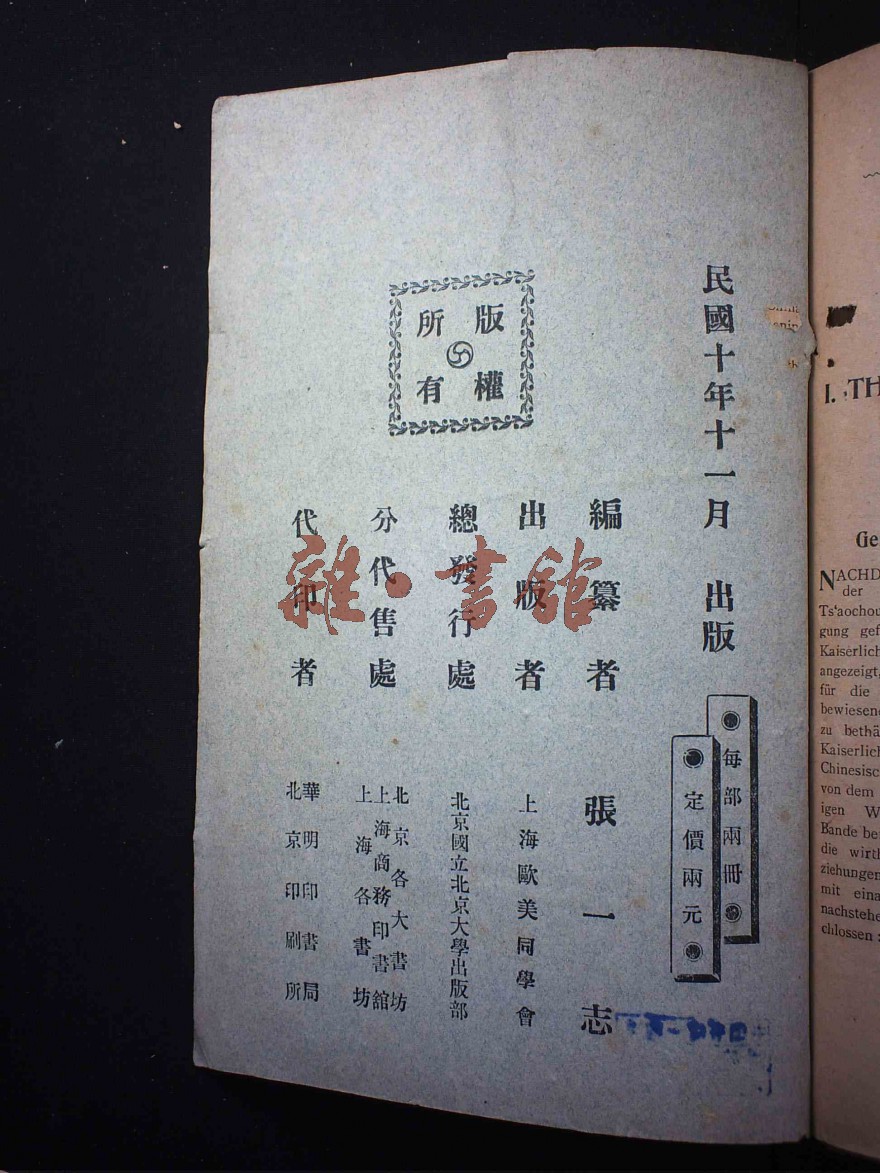 民國十年十一月 出版
每部兩冊
定價兩元
編纂者 張一志
出版者 上海歐美同學會
總發行處 北京國立北京大學出版部
分代售處 北京各大書坊
上海商務印書館
上海各書坊
代印者 華明印書局
北京印刷所
版權所有
雜·書館
I. TH
Ge
NACHD
der
Ts'aochou
gung gef
Kaiserlich
angezeigt,
für die
bewiesene
zu bethä
Kaiserlich
Chinesisc
von dem
igen W
Bande bei
die wirth
ziehungen
mit eina
nachstehe
chlossen :